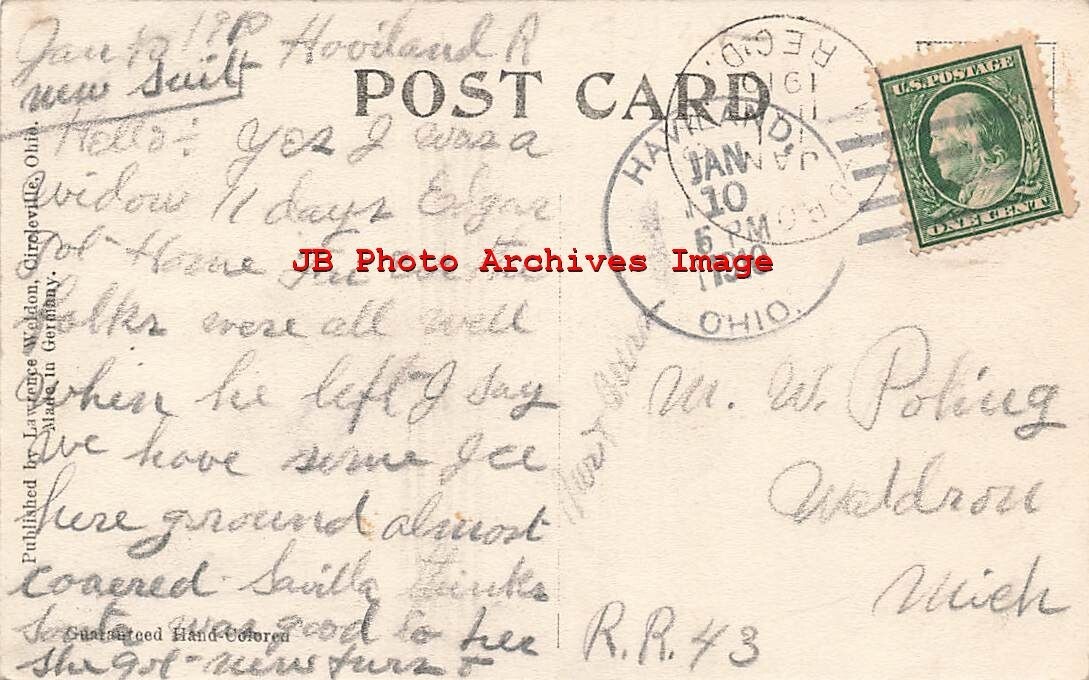 Jan 10 1910 Haviland R
new suit
POST CARD
Hello: Yes I was a
widow 11 days Edgar
got Home
folks were all well
when he left I say
we have some Ice
here ground almost
coaered Savilla thinks
Santa was good to her
she got new furs &
Published by Lawrence Weldon, Circleville, Ohio.
Made in Germany.
Guaranteed Hand-Colored
REC'D.
JAN
11
1910
HAVILAND,
JAN
10
5 PM
1910
OHIO.
U.S. POSTAGE
ONE CENT
M. W. Poling
Waldron
Mich
R.R. 43
JB Photo Archives Image